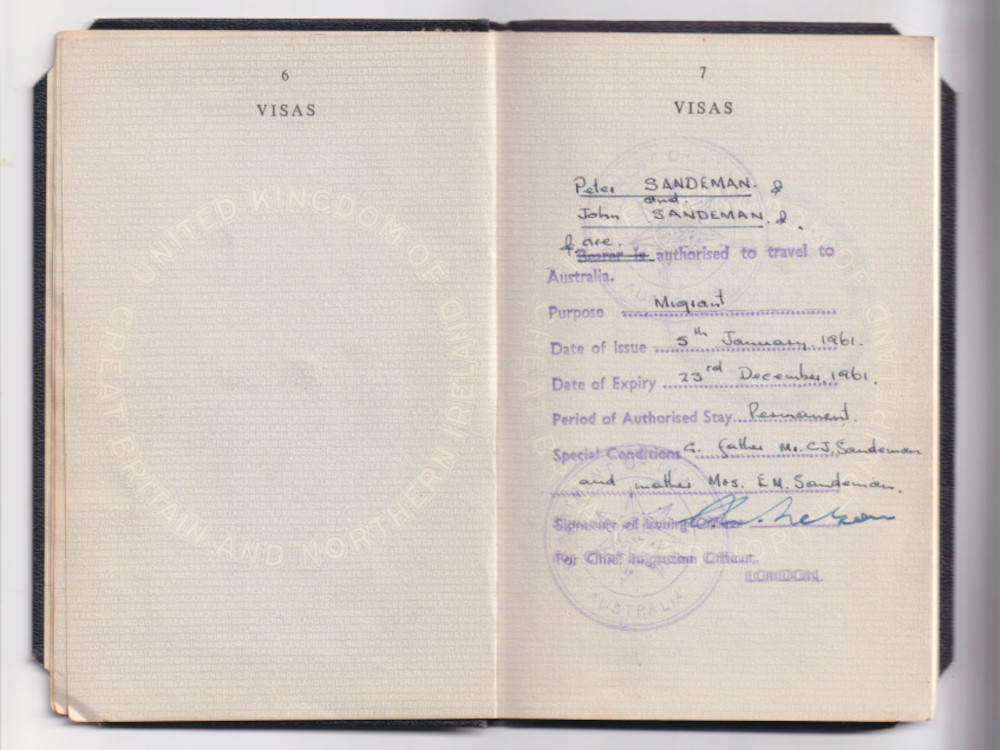 6
VISAS
UNITED KINGDOM OF GREAT BRITAIN AND NORTHERN IRELAND
7
VISAS
Peter SANDEMAN. &
and.
John SANDEMAN. &.
& are.
Bearer is authorised to travel to
Australia.
Purpose Migrant
Date of Issue 5th January, 1961.
Date of Expiry 23rd December, 1961.
Period of Authorised Stay Permanent.
Special Conditions G. father Mr. C.J. Sandeman
and mother Mrs. E.M. Sandeman.
Signature of Issuing Officer
For Chief Migration Officer,
LONDON.
AUSTRALIA